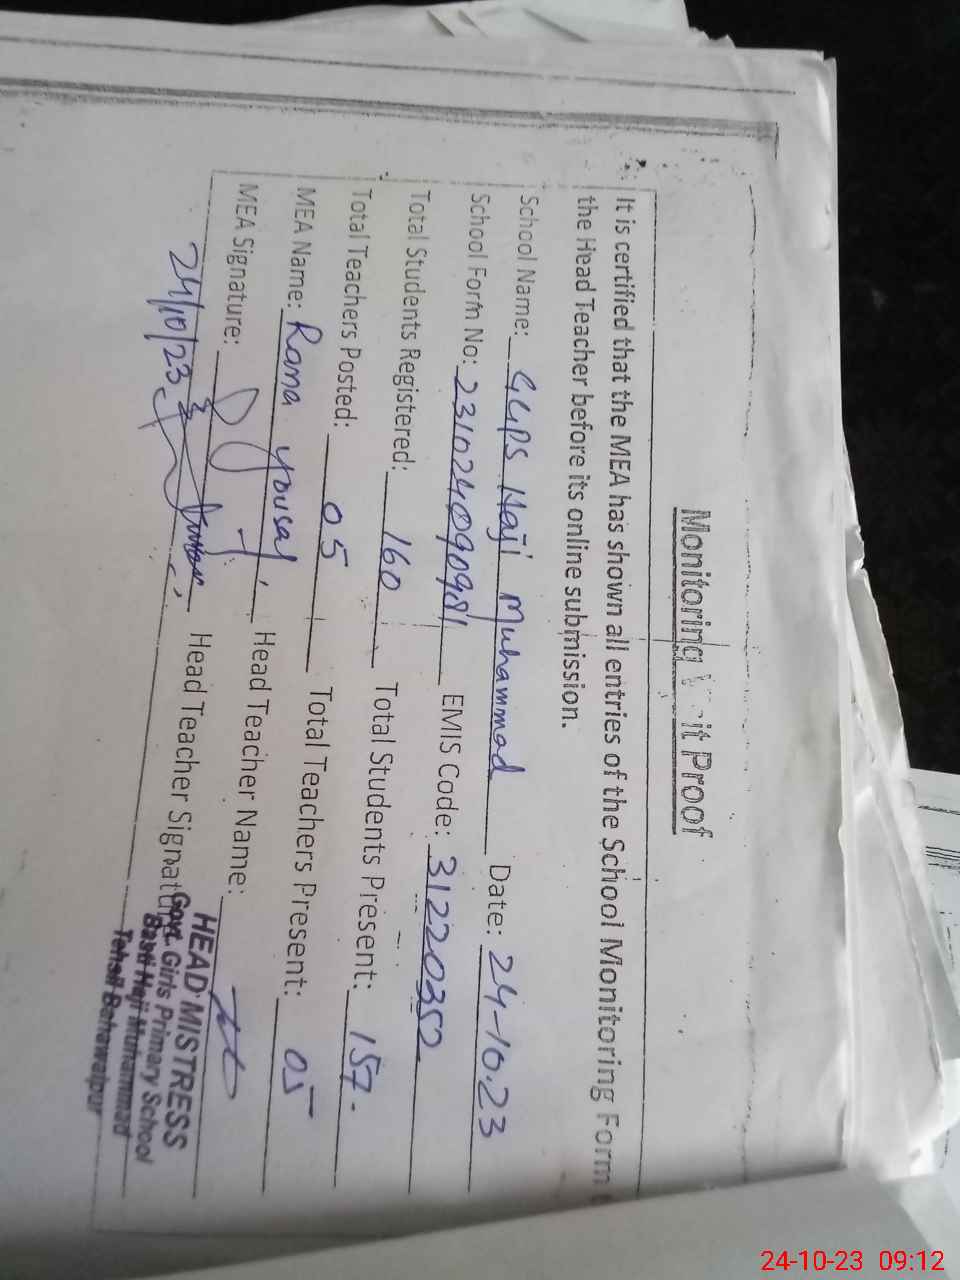 Monitoring Visit Proof
It is certified that the MEA has shown all entries of the School Monitoring Form
the Head Teacher before its online submission.
School Name: GGPS Haji Muhammad Date: 24-10.23
School Form No: 23102409098 EMIS Code: 31220352
Total Students Registered: 160 Total Students Present: 157.
Total Teachers Posted: 05 Total Teachers Present: 05
MEA Name: Rana Yousaf, Head Teacher Name:
MEA Signature: Head Teacher Signature
24/10/23
HEAD MISTRESS
Govt. Girls Primary School
Basti Haji Muhammad
Tehsil Bahawalpur
24-10-23 09:12